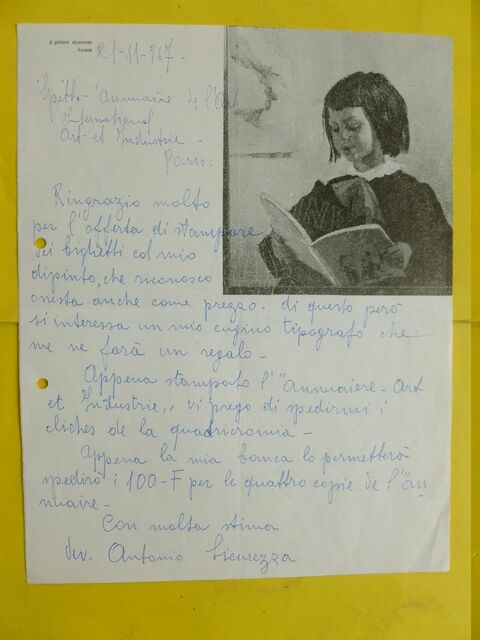 il pittore sicurezza
formia
21-11-967-
Spett. "Annuaire de l'Art
International
Art et Industrie -
Paris.
Ringrazio molto
per l'offerta di stampare
dei biglietti col mio
dipinto, che riconosco
onesta anche come prezzo - di questo però
si interessa un mio cugino tipografo che
me ne farà un regalo -
Appena stampato l'"Annuaiere - Art
et Industrie,, vi prego di spedirmi i
cliches de la quadricromia -
Appena la mia banca lo permetterà
spedirò i 100-F per le quattro copie de l'"An
nuaire -
Con molta stima
dev. Antonio Sicurezza